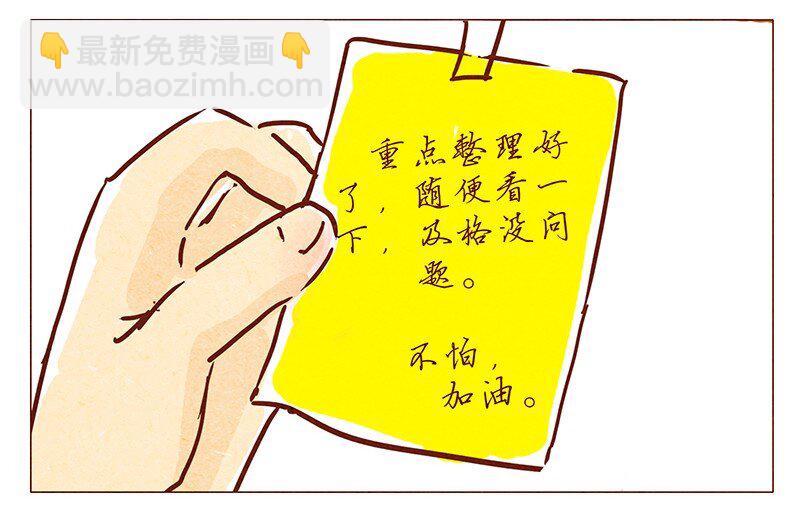 👇最新免费漫画👇
www.baozimh.com
重点整理好
了，随便看一
下，及格没问
题。
不怕，
加油。